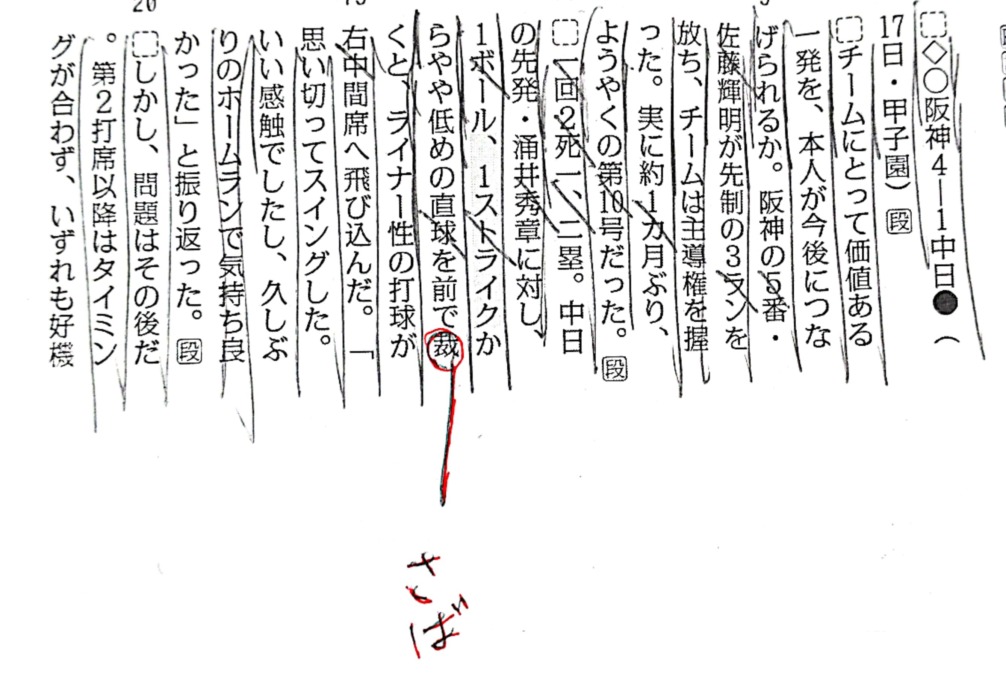 ◇○阪神4―1中日●（
17日・甲子園）段
チームにとって価値ある
一発を、本人が今後につな
げられるか。阪神の5番・
佐藤輝明が先制の3ランを
放ち、チームは主導権を握
った。実に約1カ月ぶり、
ようやくの第10号だった。段
一回2死一、二塁。中日
の先発・涌井秀章に対し、
1ボール、1ストライクか
らやや低めの直球を前で裁
くと、ライナー性の打球が
右中間席へ飛び込んだ。「
思い切ってスイングした。
いい感触でしたし、久しぶ
りのホームランで気持ち良
かった」と振り返った。段
しかし、問題はその後だ
。第2打席以降はタイミン
グが合わず、いずれも好機
さば